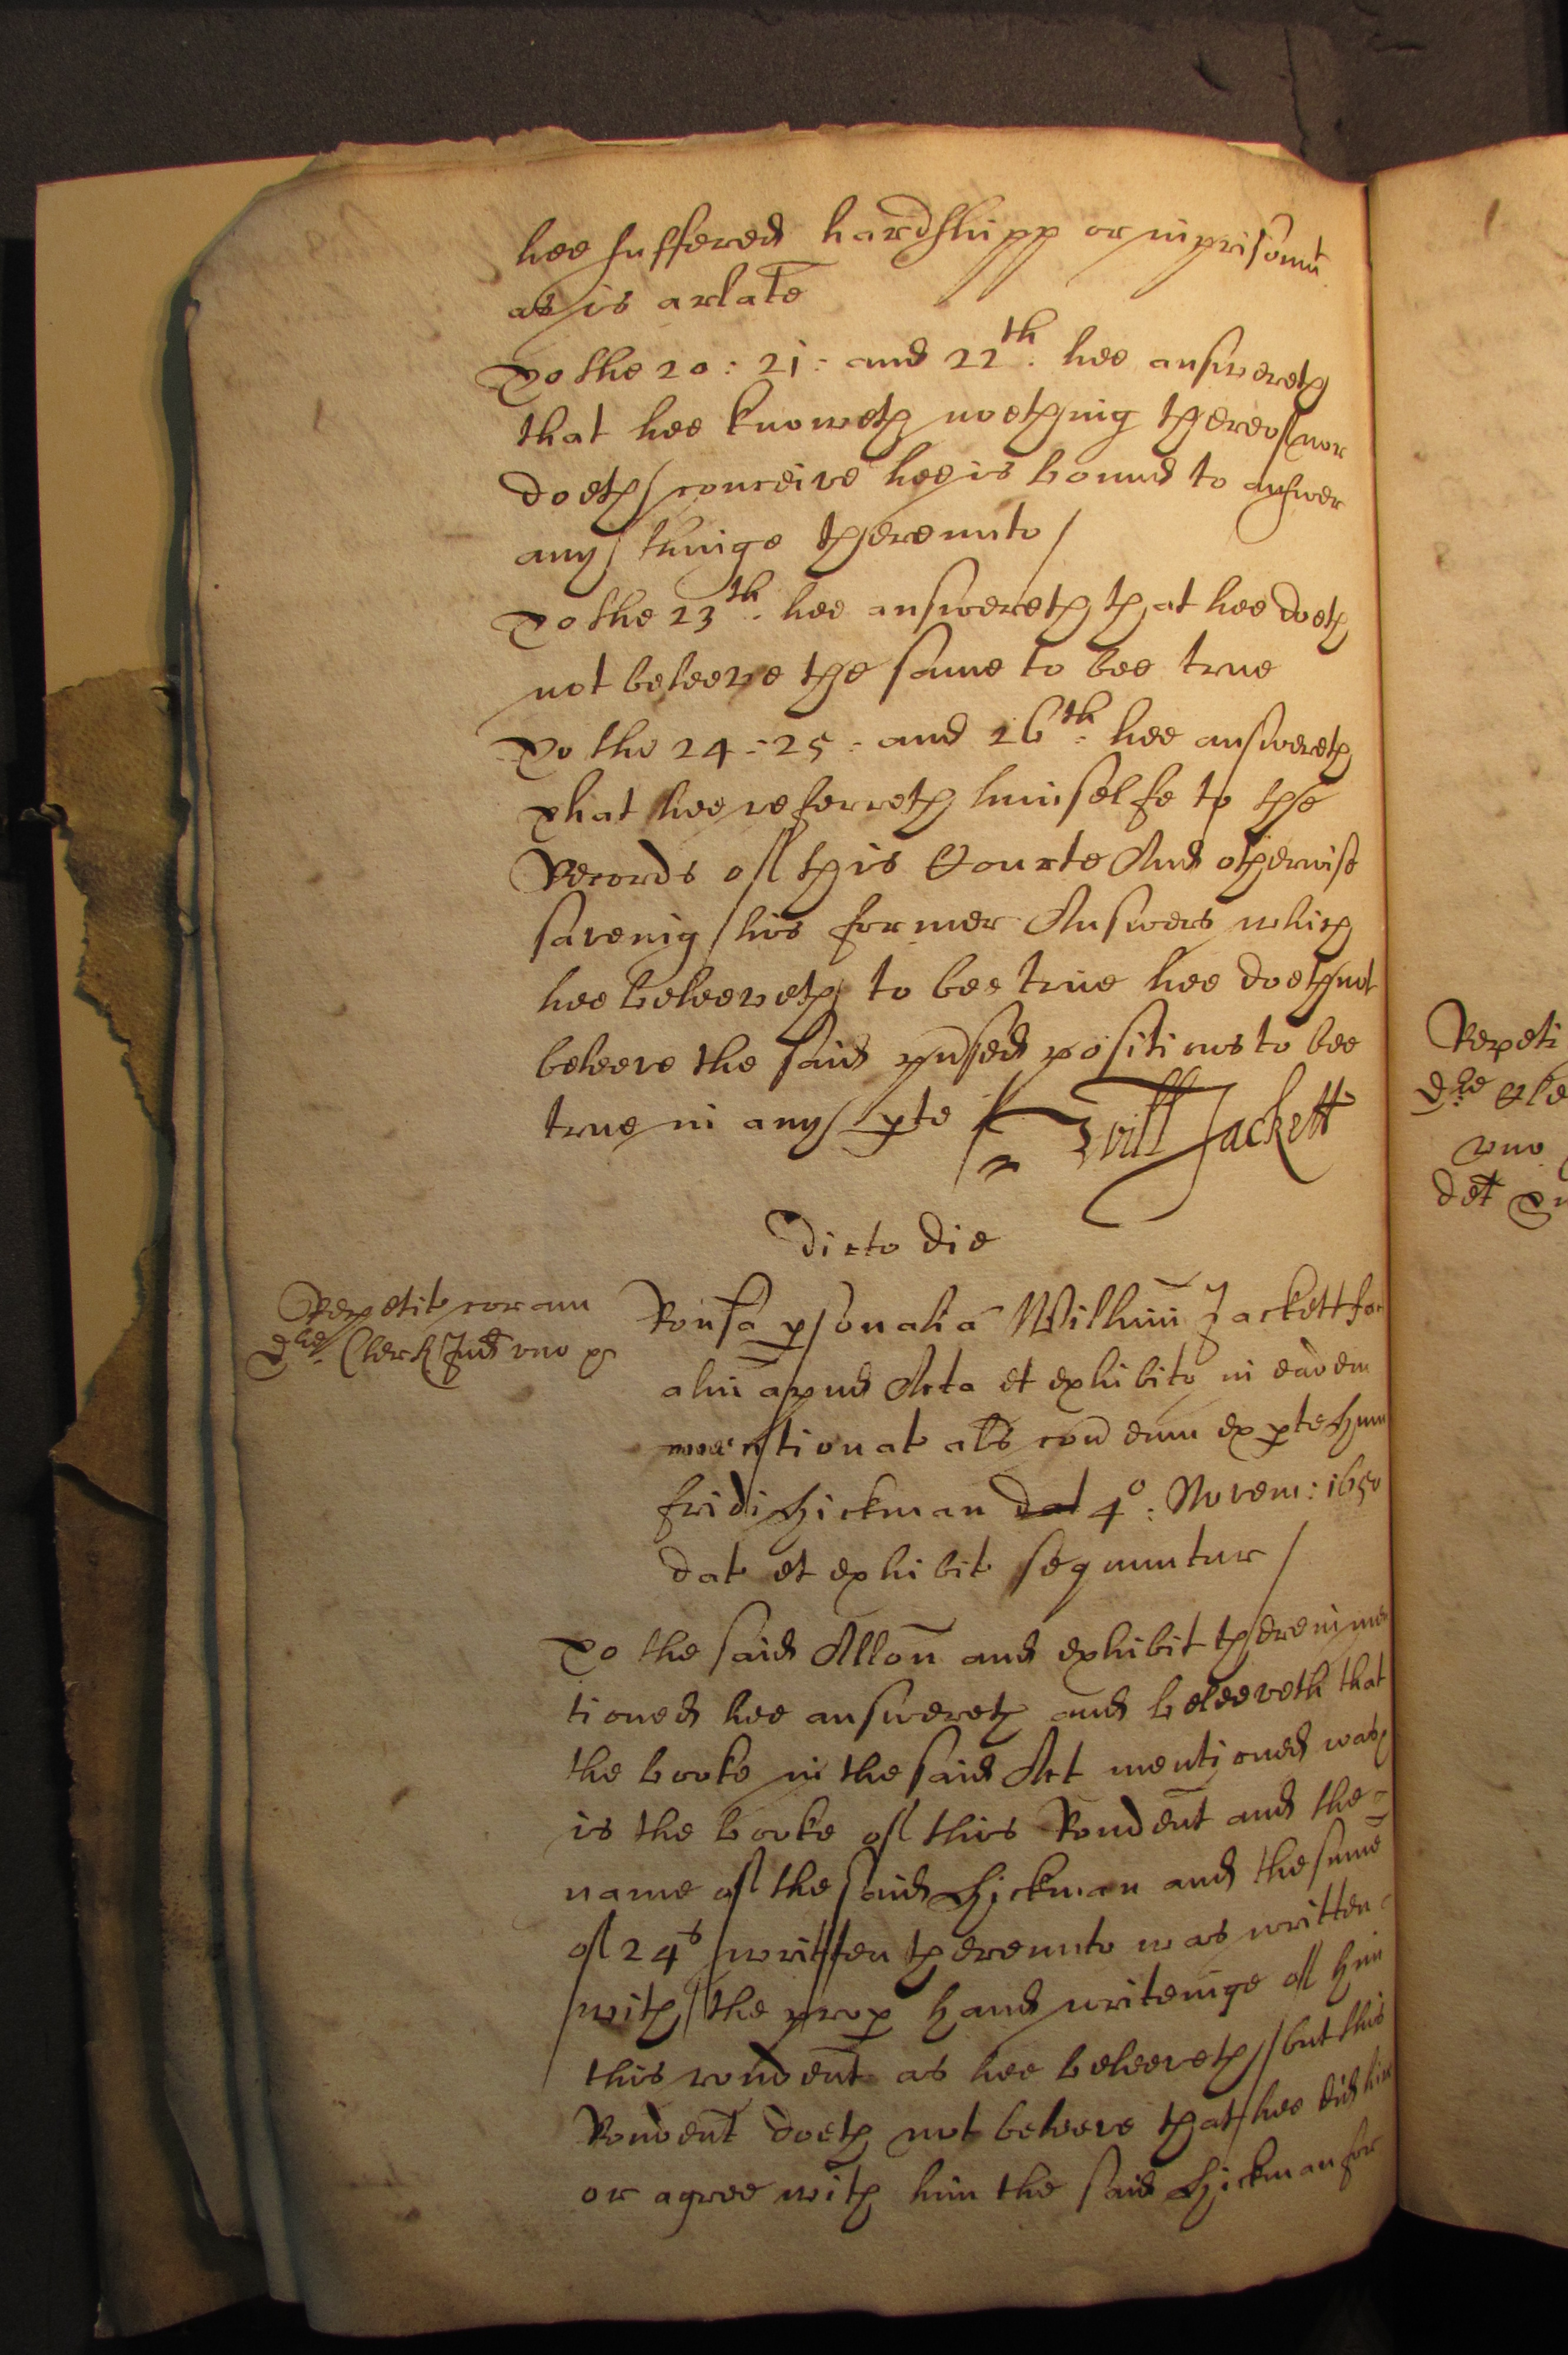 hee suffered hardshipp or inprisomt
as is arlate
To the 20: 21: and 22th: hee answereth
that hee knoweth noething thereof nor
doeth conceive hee is bound to answer
any thinge thereunto /
To the 23th. hee answereth that hee doeth
not beleeve the same to bee true
To the 24: 25: and 26th: hee answereth
That hee referreth himselfe to the
Records of this Courte And otherwise
saveing his former Answers which
hee beleeveth to bee true hee doeth not
beleeve the said pnsed positions to bee
true in any pte
Will Jackett
Dicto die
Repetit coram
Dre. Clerk Jud vno &
Ronsa psonalia Willimi Jackett fa
alin apud Acta et exhibito in eadem
mentionat als con eum ex pte Hum
fridi Hickman dat 4o: Novem: 1650
dat et exhibit sequuntur /
To the said Allon and exhibit therein men
tioned hee answereth and beleeveth that
the booke in the said Act mentioned was
is the booke of this Rondent and the
name of the said Hickman and the sume
of 24s written thereunto was written
with the prop hand writeinge of him
this rondent as hee beleeveth but this
Rondent doeth not beleeve that hee did
or agree with him the said Hickman for
Repeti
Dre Cle
vno
det